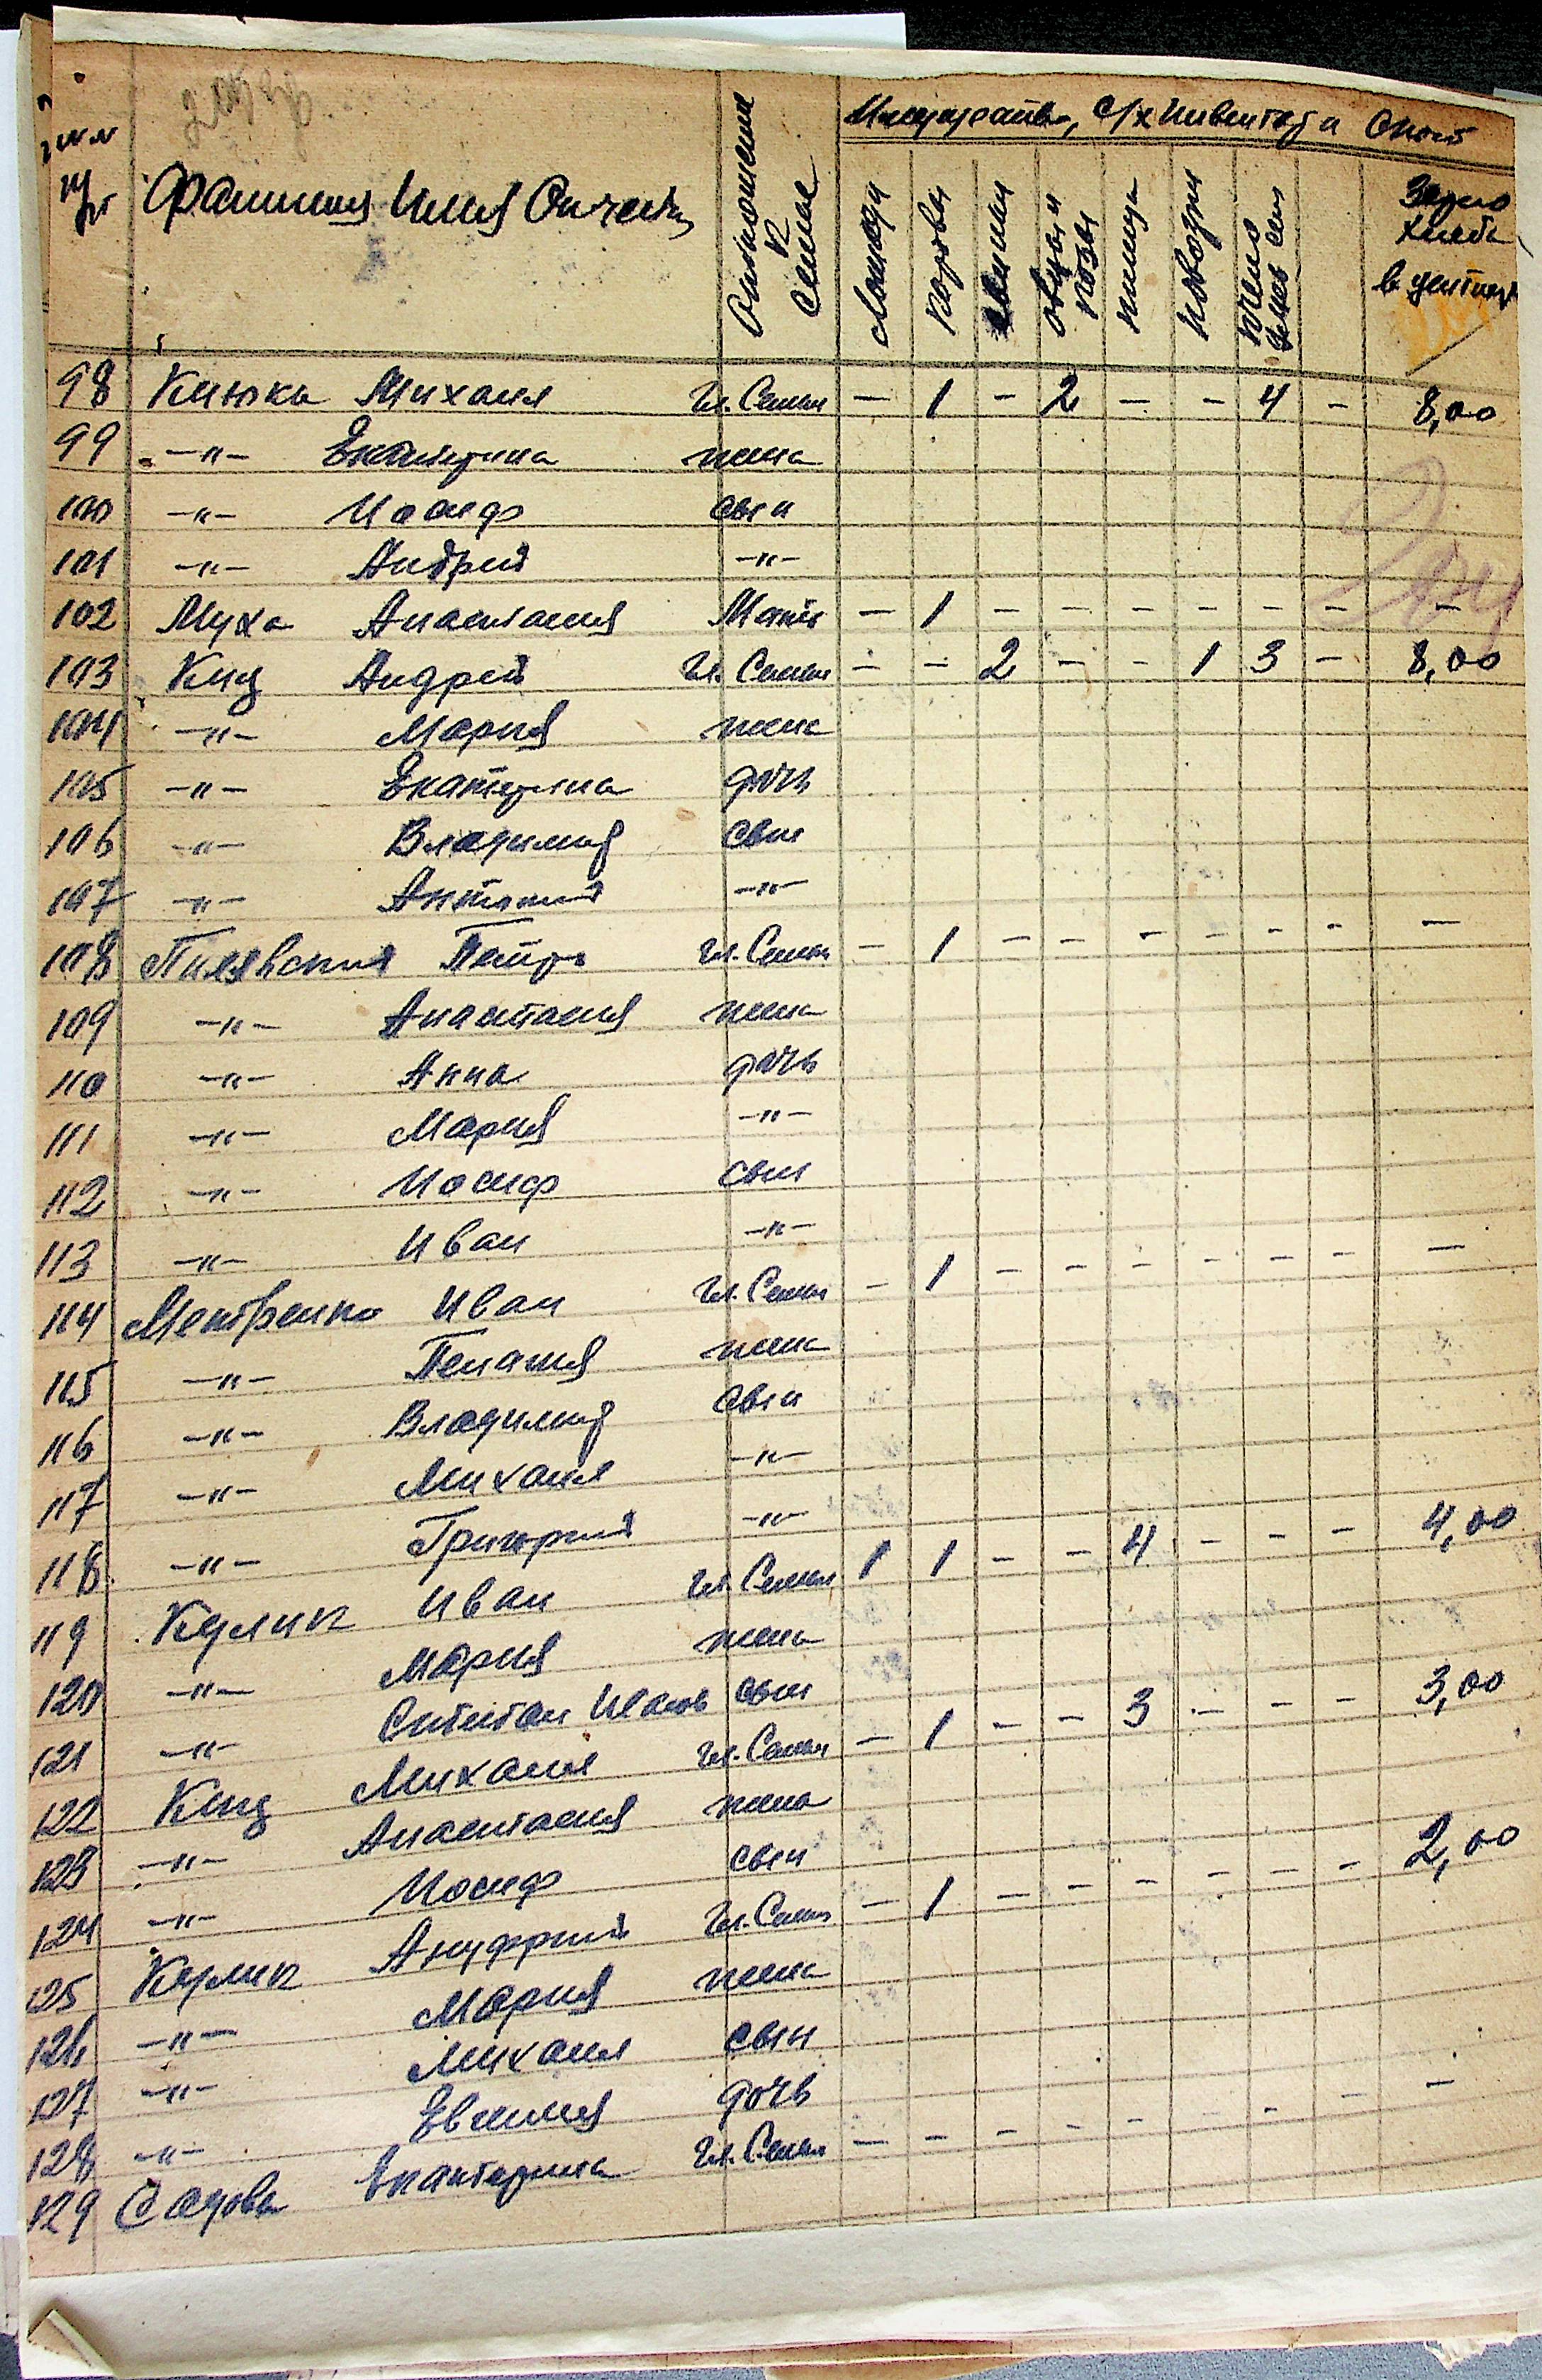 Фамилия Имя Отчество
Отношение к семье
Имущество, с/х инвентарь и скот
Лошади
Коровы
Свиньи
овцы и козы
птица
Зерно хлеба в центнер
98 Клюка Михаил Гл. Семьи — 1 — 2 — — 4 — 8,00
99 —"— Екатерина жена
100 —"— Иосиф сын
101 —"— Андрей —"—
102 Муха Анастасия Мать — 1 — — — — — — —
103 Кищ Андрей Гл. Семьи — — 2 — — 1 3 — 8,00
104 —"— Мария жена
105 —"— Екатерина дочь
106 —"— Владимир сын
107 —"— Антоний —"—
108 Пилявский Петр Гл. Семьи — 1 — — — — — — —
109 —"— Анастасия жена
110 —"— Анна дочь
111 —"— Мария —"—
112 —"— Иосиф сын
113 —"— Иван —"—
114 Иван Гл. Семьи — 1 — — — — — — —
115 —"— Пелагия жена
116 —"— Владимир сын
117 —"— Михаил —"—
118 —"— Григорий —"—
119 Кулик Иван Гл. Семьи 1 1 — — 4 — — — 4,00
120 —"— Мария жена
121 —"— сын
122 Кищ Михаил Гл. Семьи — 1 — — 3 — — — 3,00
123 —"— Анастасия жена
124 —"— Иосиф сын
125 Кулик Ануфрий Гл. Семьи — 1 — — — — — — 2,00
126 —"— Мария жена
127 —"— Михаил сын
128 —"— Евгения дочь
129 Екатерина Гл. Семьи — — — — — — — — —